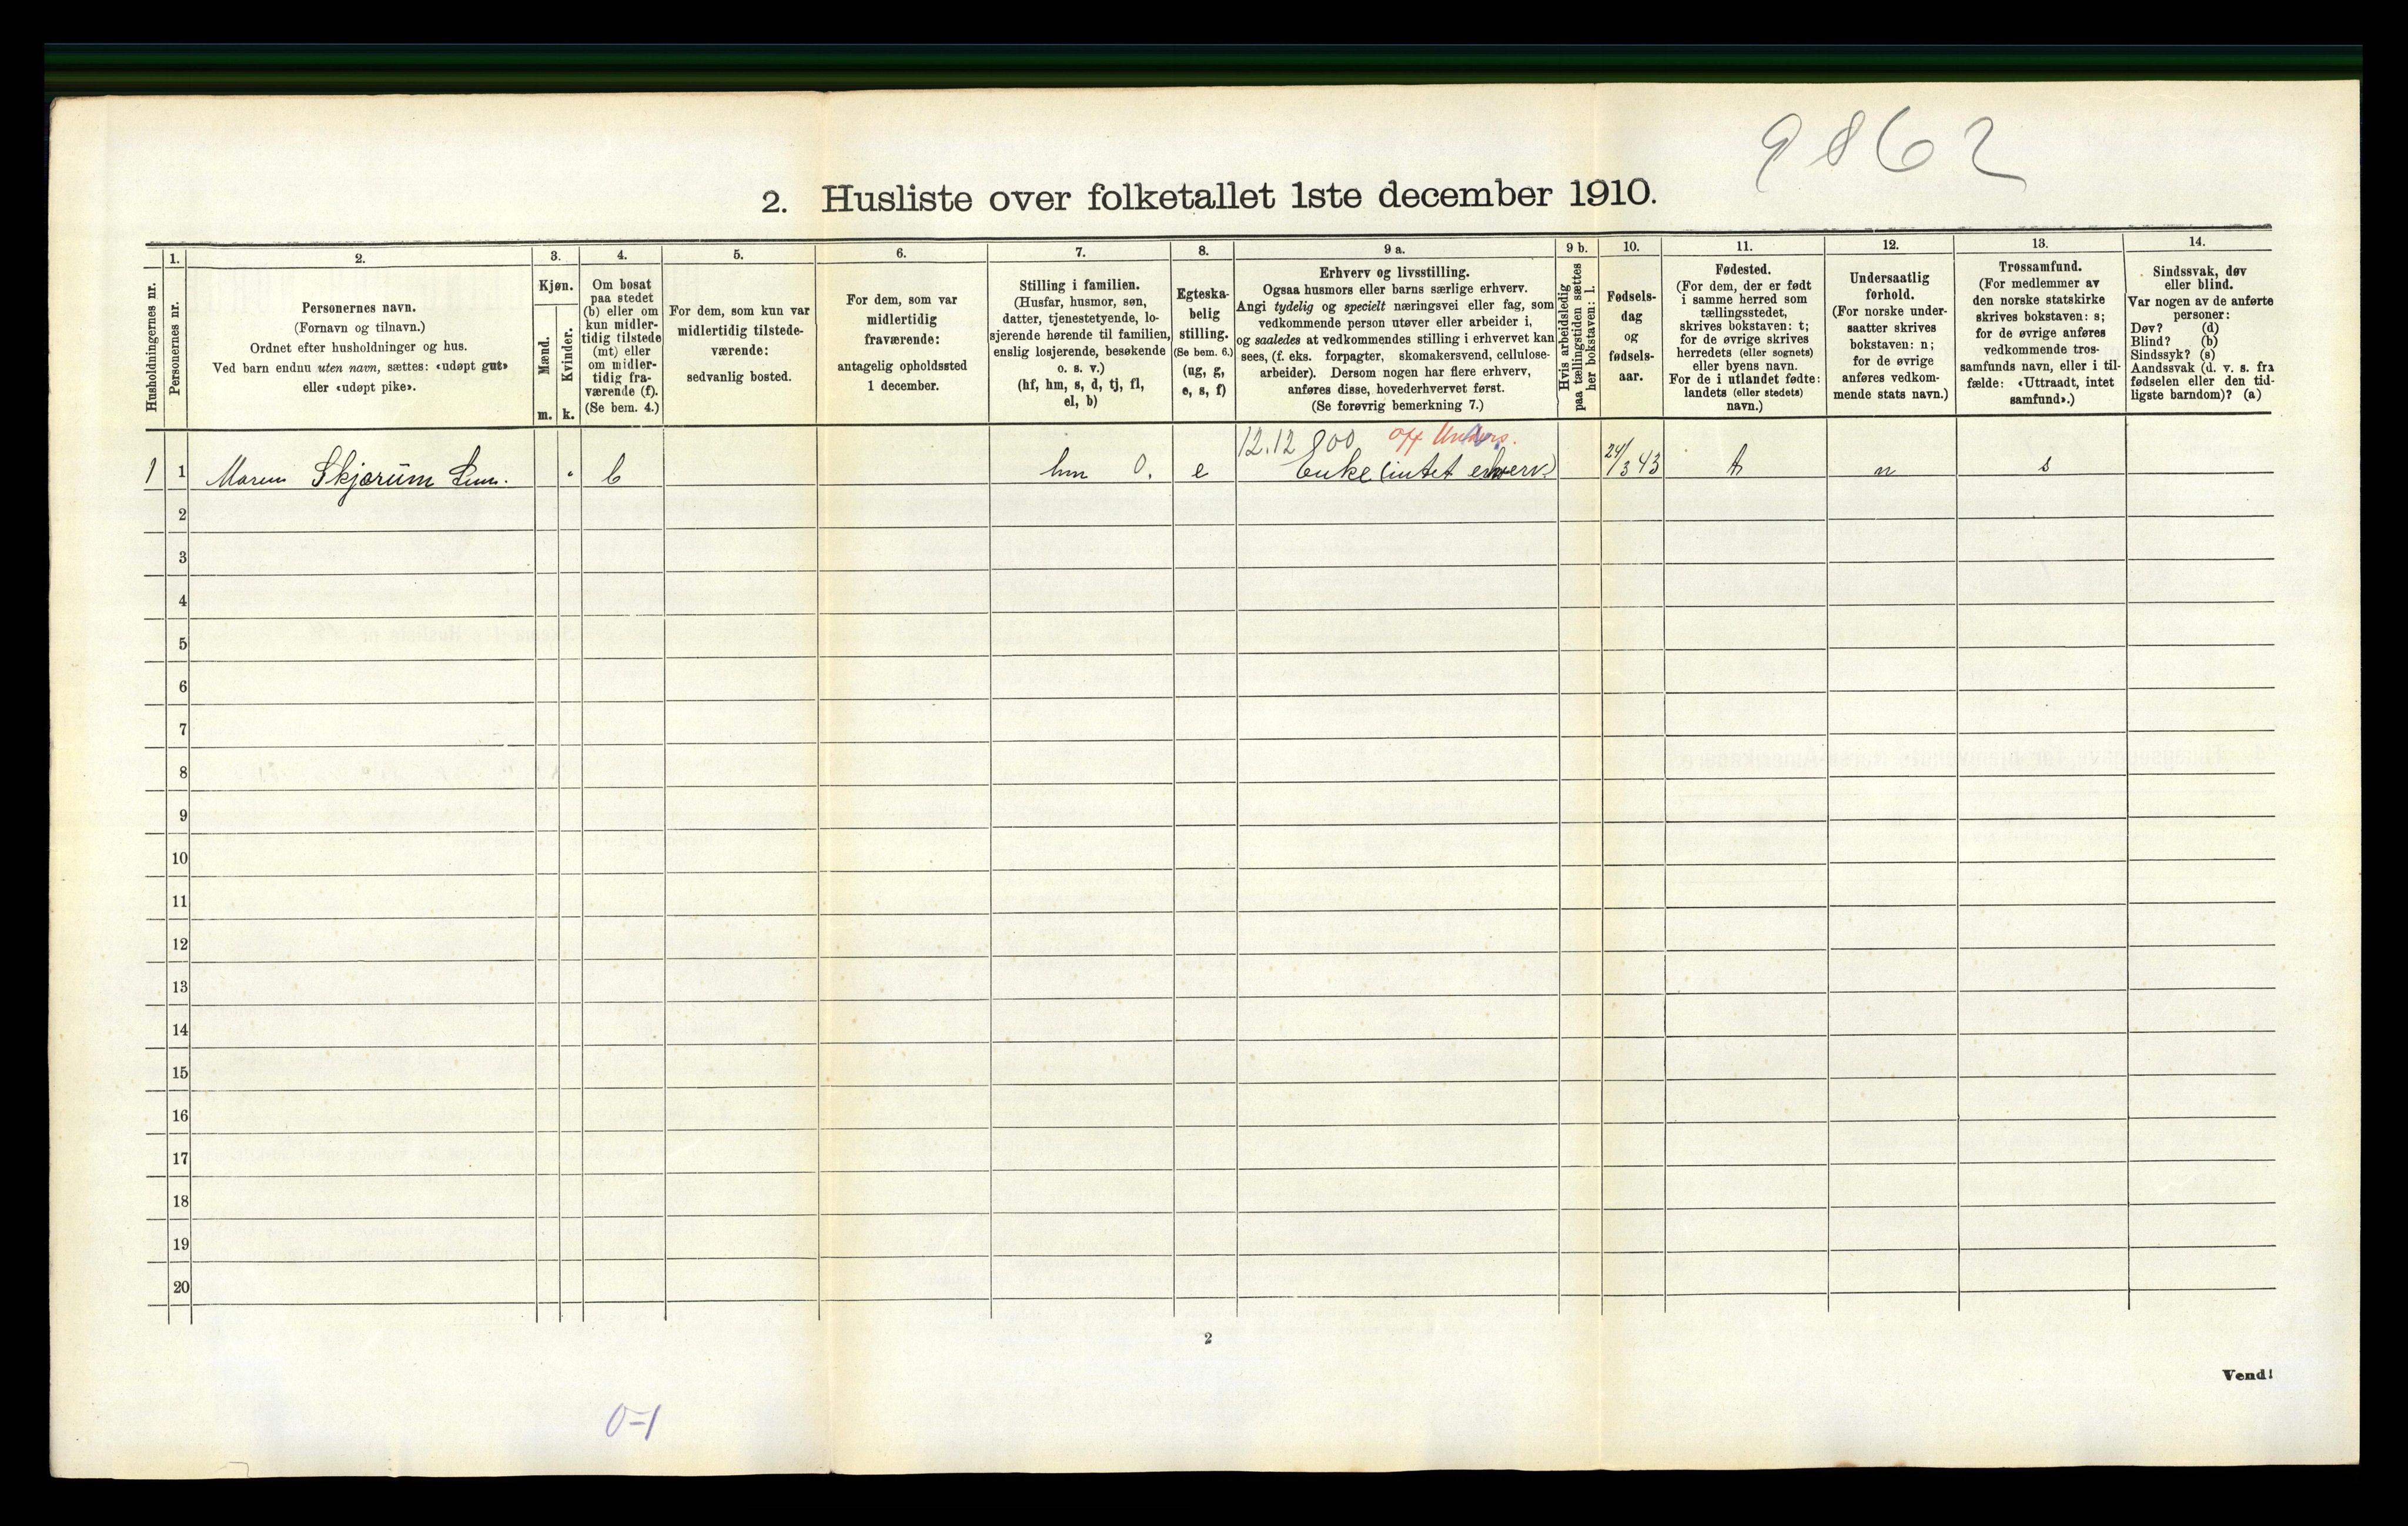 9862
2. Husliste over folketallet 1ste december 1910.
Husholdningernes nr.
1.
Personernes nr.
2.
Personernes navn.
(Fornavn og tilnavn.)
Ordnet efter husholdninger og hus.
Ved barn endnu uten navn, sættes: «udøpt gut»
eller «udøpt pike».
3.
Kjøn.
Mænd.
Kvinder.
m. k.
4.
Om bosat
paa stedet
(b) eller om
kun midler-
tidig tilstede
(mt) eller
om midler-
tidig fra-
værende (f).
(Se bem. 4.)
5.
For dem, som kun var
midlertidig tilstede-
værende:
sedvanlig bosted.
6.
For dem, som var
midlertidig
fraværende:
antagelig opholdssted
1 december.
7.
Stilling i familien.
(Husfar, husmor, søn,
datter, tjenestetyende, lo-
sjerende hørende til familien,
enslig losjerende, besøkende
o. s. v.)
(hf, hm, s, d, tj, fl,
el, b)
8.
Egteska-
belig
stilling.
(Se bem. 6.)
(ug, g,
e, s, f)
9 a.
Erhverv og livsstilling.
Ogsaa husmors eller barns særlige erhverv.
Angi tydelig og specielt næringsvei eller fag, som
vedkommende person utøver eller arbeider i,
og saaledes at vedkommendes stilling i erhvervet kan
sees, (f. eks. forpagter, skomakersvend, cellulose-
arbeider). Dersom nogen har flere erhverv,
anføres disse, hovederhvervet først.
(Se forøvrig bemerkning 7.)
9 b.
Hvis arbeidsledig
paa tællingstiden sættes
her bokstaven: l.
10.
Fødsels-
dag
og
fødsels-
aar.
11.
Fødested.
(For dem, der er født
i samme herred som
tællingsstedet,
skrives bokstaven: t;
for de øvrige skrives
herredets (eller sognets)
eller byens navn.
For de i utlandet fødte:
landets (eller stedets)
navn.)
12.
Undersaatlig
forhold.
(For norske under-
saatter skrives
bokstaven: n;
for de øvrige
anføres vedkom-
mende stats navn.)
13.
Trossamfund.
(For medlemmer av
den norske statskirke
skrives bokstaven: s;
for de øvrige anføres
vedkommende tros-
samfunds navn, eller i til-
fælde: «Uttraadt, intet
samfund».)
14.
Sindssvak, døv
eller blind.
Var nogen av de anførte
personer:
Døv? (d)
Blind? (b)
Sindssyk? (s)
Aandssvak (d. v. s. fra
fødselen eller den tid-
ligste barndom)? (a)
12.12 900 off Unders.
1 1 Maren Skjørum b hm 0. e Enke (intet erhverv) 24/3 43 t n s
2
3
4
5
6
7
8
9
10
11
12
13
14
15
16
17
18
19
20
2
Vend!
0=1